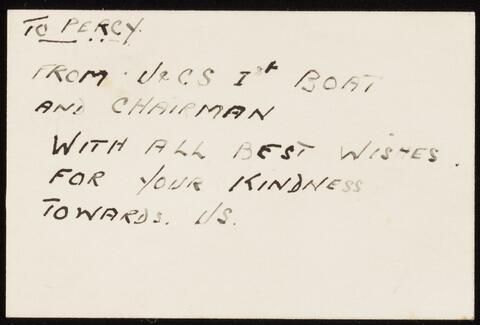 TO PERCY.
FROM U&CS 1st BOAT
AND CHAIRMAN
WITH ALL BEST WISHES.
FOR YOUR KINDNESS
TOWARDS. US.